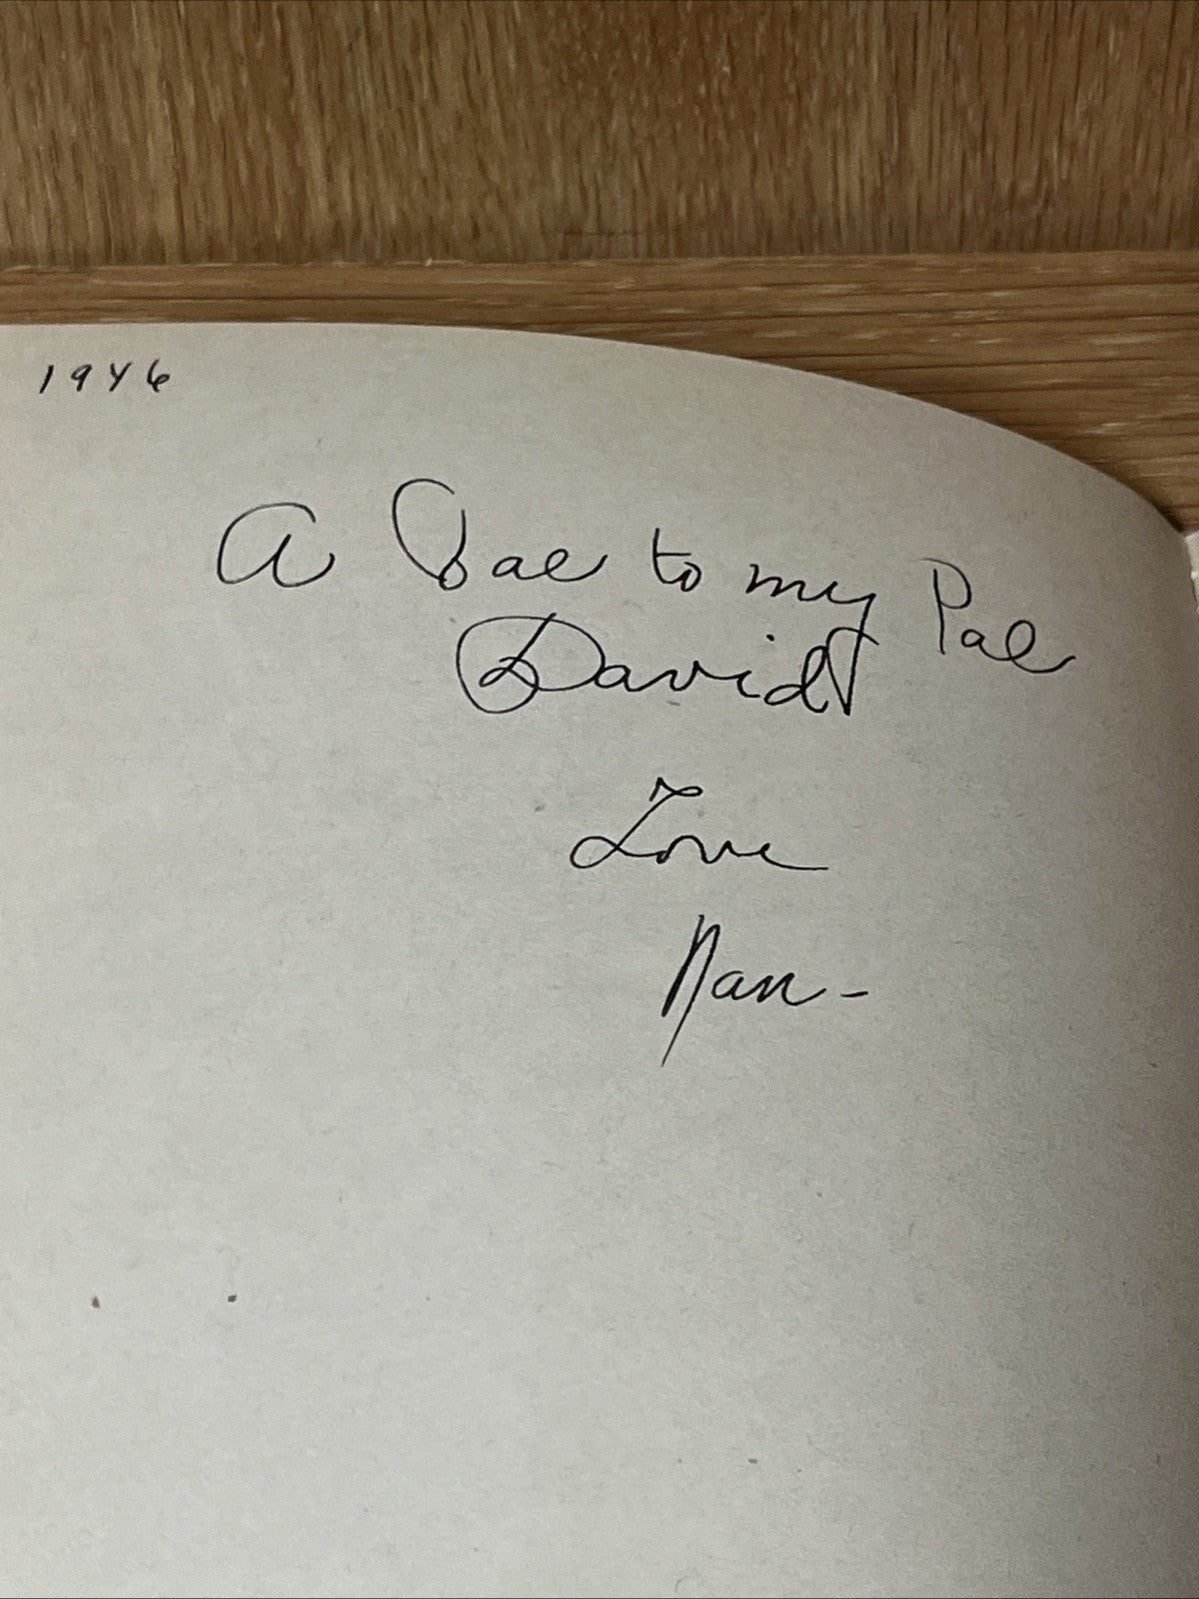 1946
A Pal to my Pal
David
Love
Nan -